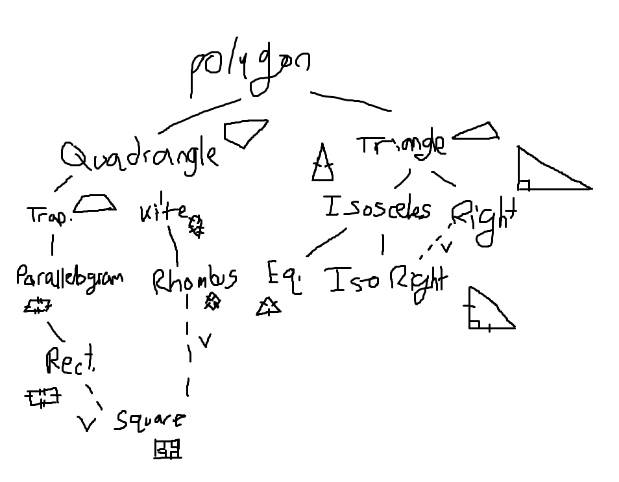 polygon
Quadrangle
Triangle
Trap.
Kite
Isosceles
Right
Parallelogram
Rhombus
Eq.
Iso Right
V
V
Rect.
V
Square